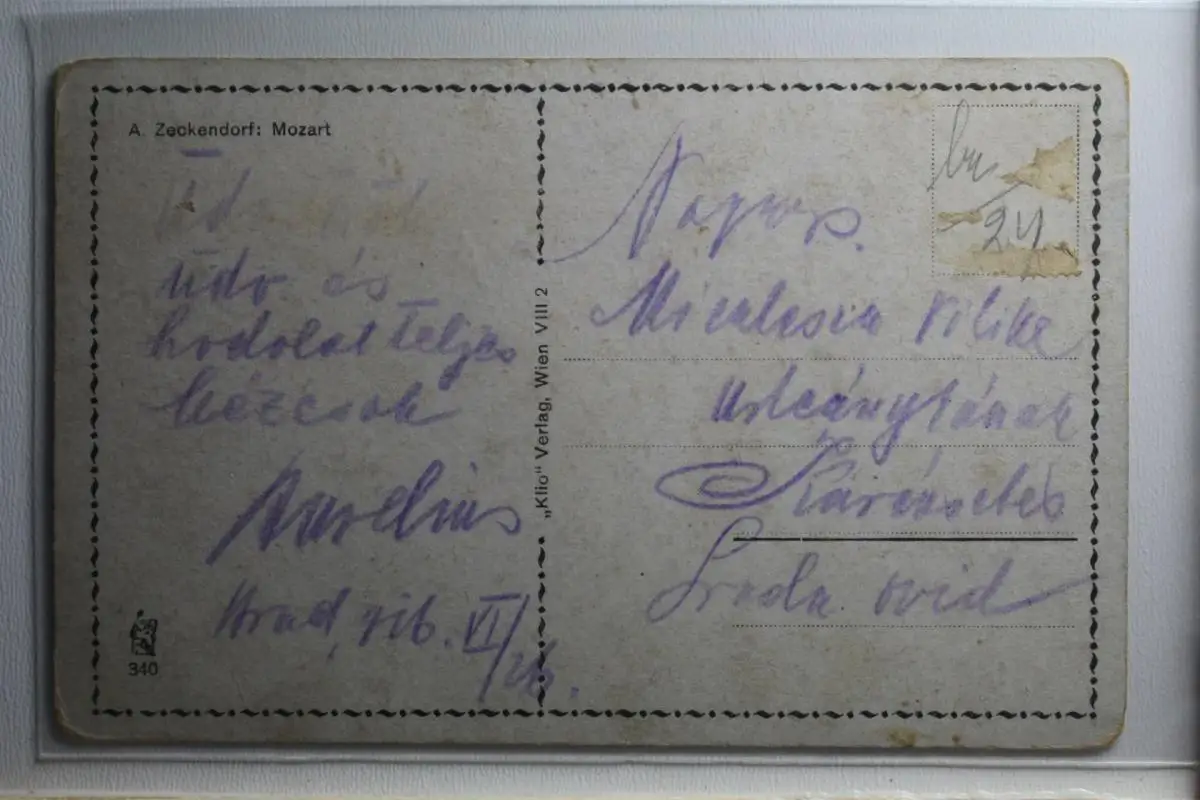 A. Zeckendorf: Mozart
üdv és
hodolat teljes
kézcsok
Aurelius
Arad, 916. VI/26.
340
„Klio" Verlag, Wien VIII 2
Nagys.
Miculescu Vilike
Urleánytának
Karánsebes
Strada Ovid
24